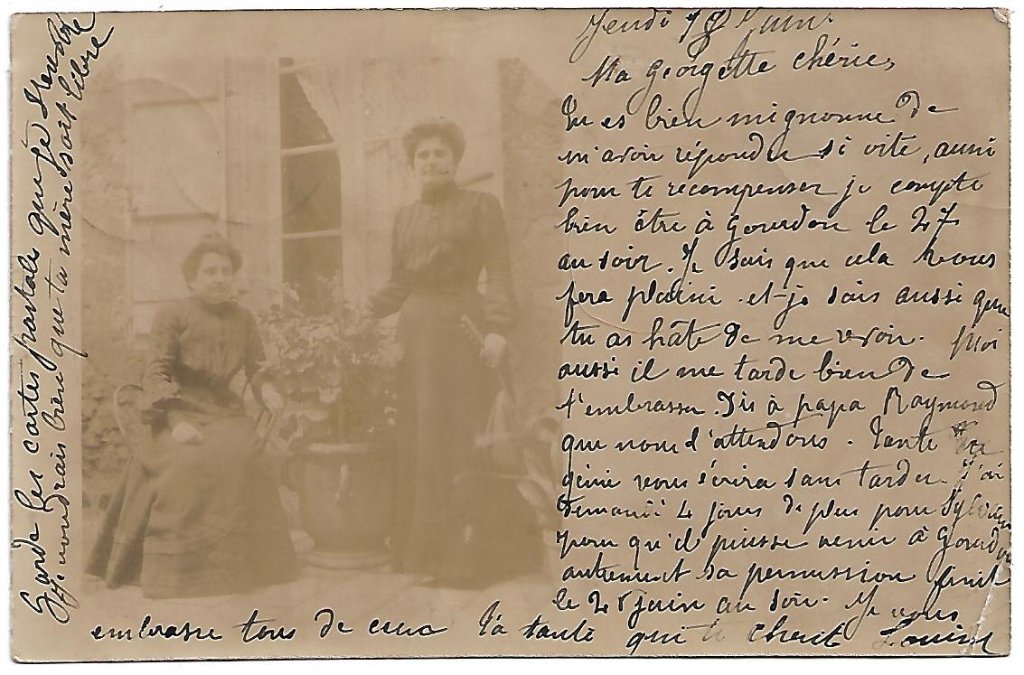 Jeudi Juin.
Ma Georgette chérie,
Tu es bien mignonne de
m'avoir répondu si vite, aussi
pour te recompenser je compte
bien être à Gourdon le 27
au soir. Je sais que cela vous
fera plaisir et je sais aussi que
tu as hâte de me revoir. Moi
aussi il me tarde bien de
t'embrasser. Dis à papa Raymond
que nous l'attendons. Tante
génie vous écrira sans tarder. J'ai
demandé 4 jours de plus pour Sylvain
pour qu'il puisse venir à Gourdon
autrement sa permission finit
le 28 juin au soir. Je vous
embrasse tous de cœur Ta tante qui te chérit Louise
Garde les cartes postales que je
Je voudrais bien que ta mère soit libre